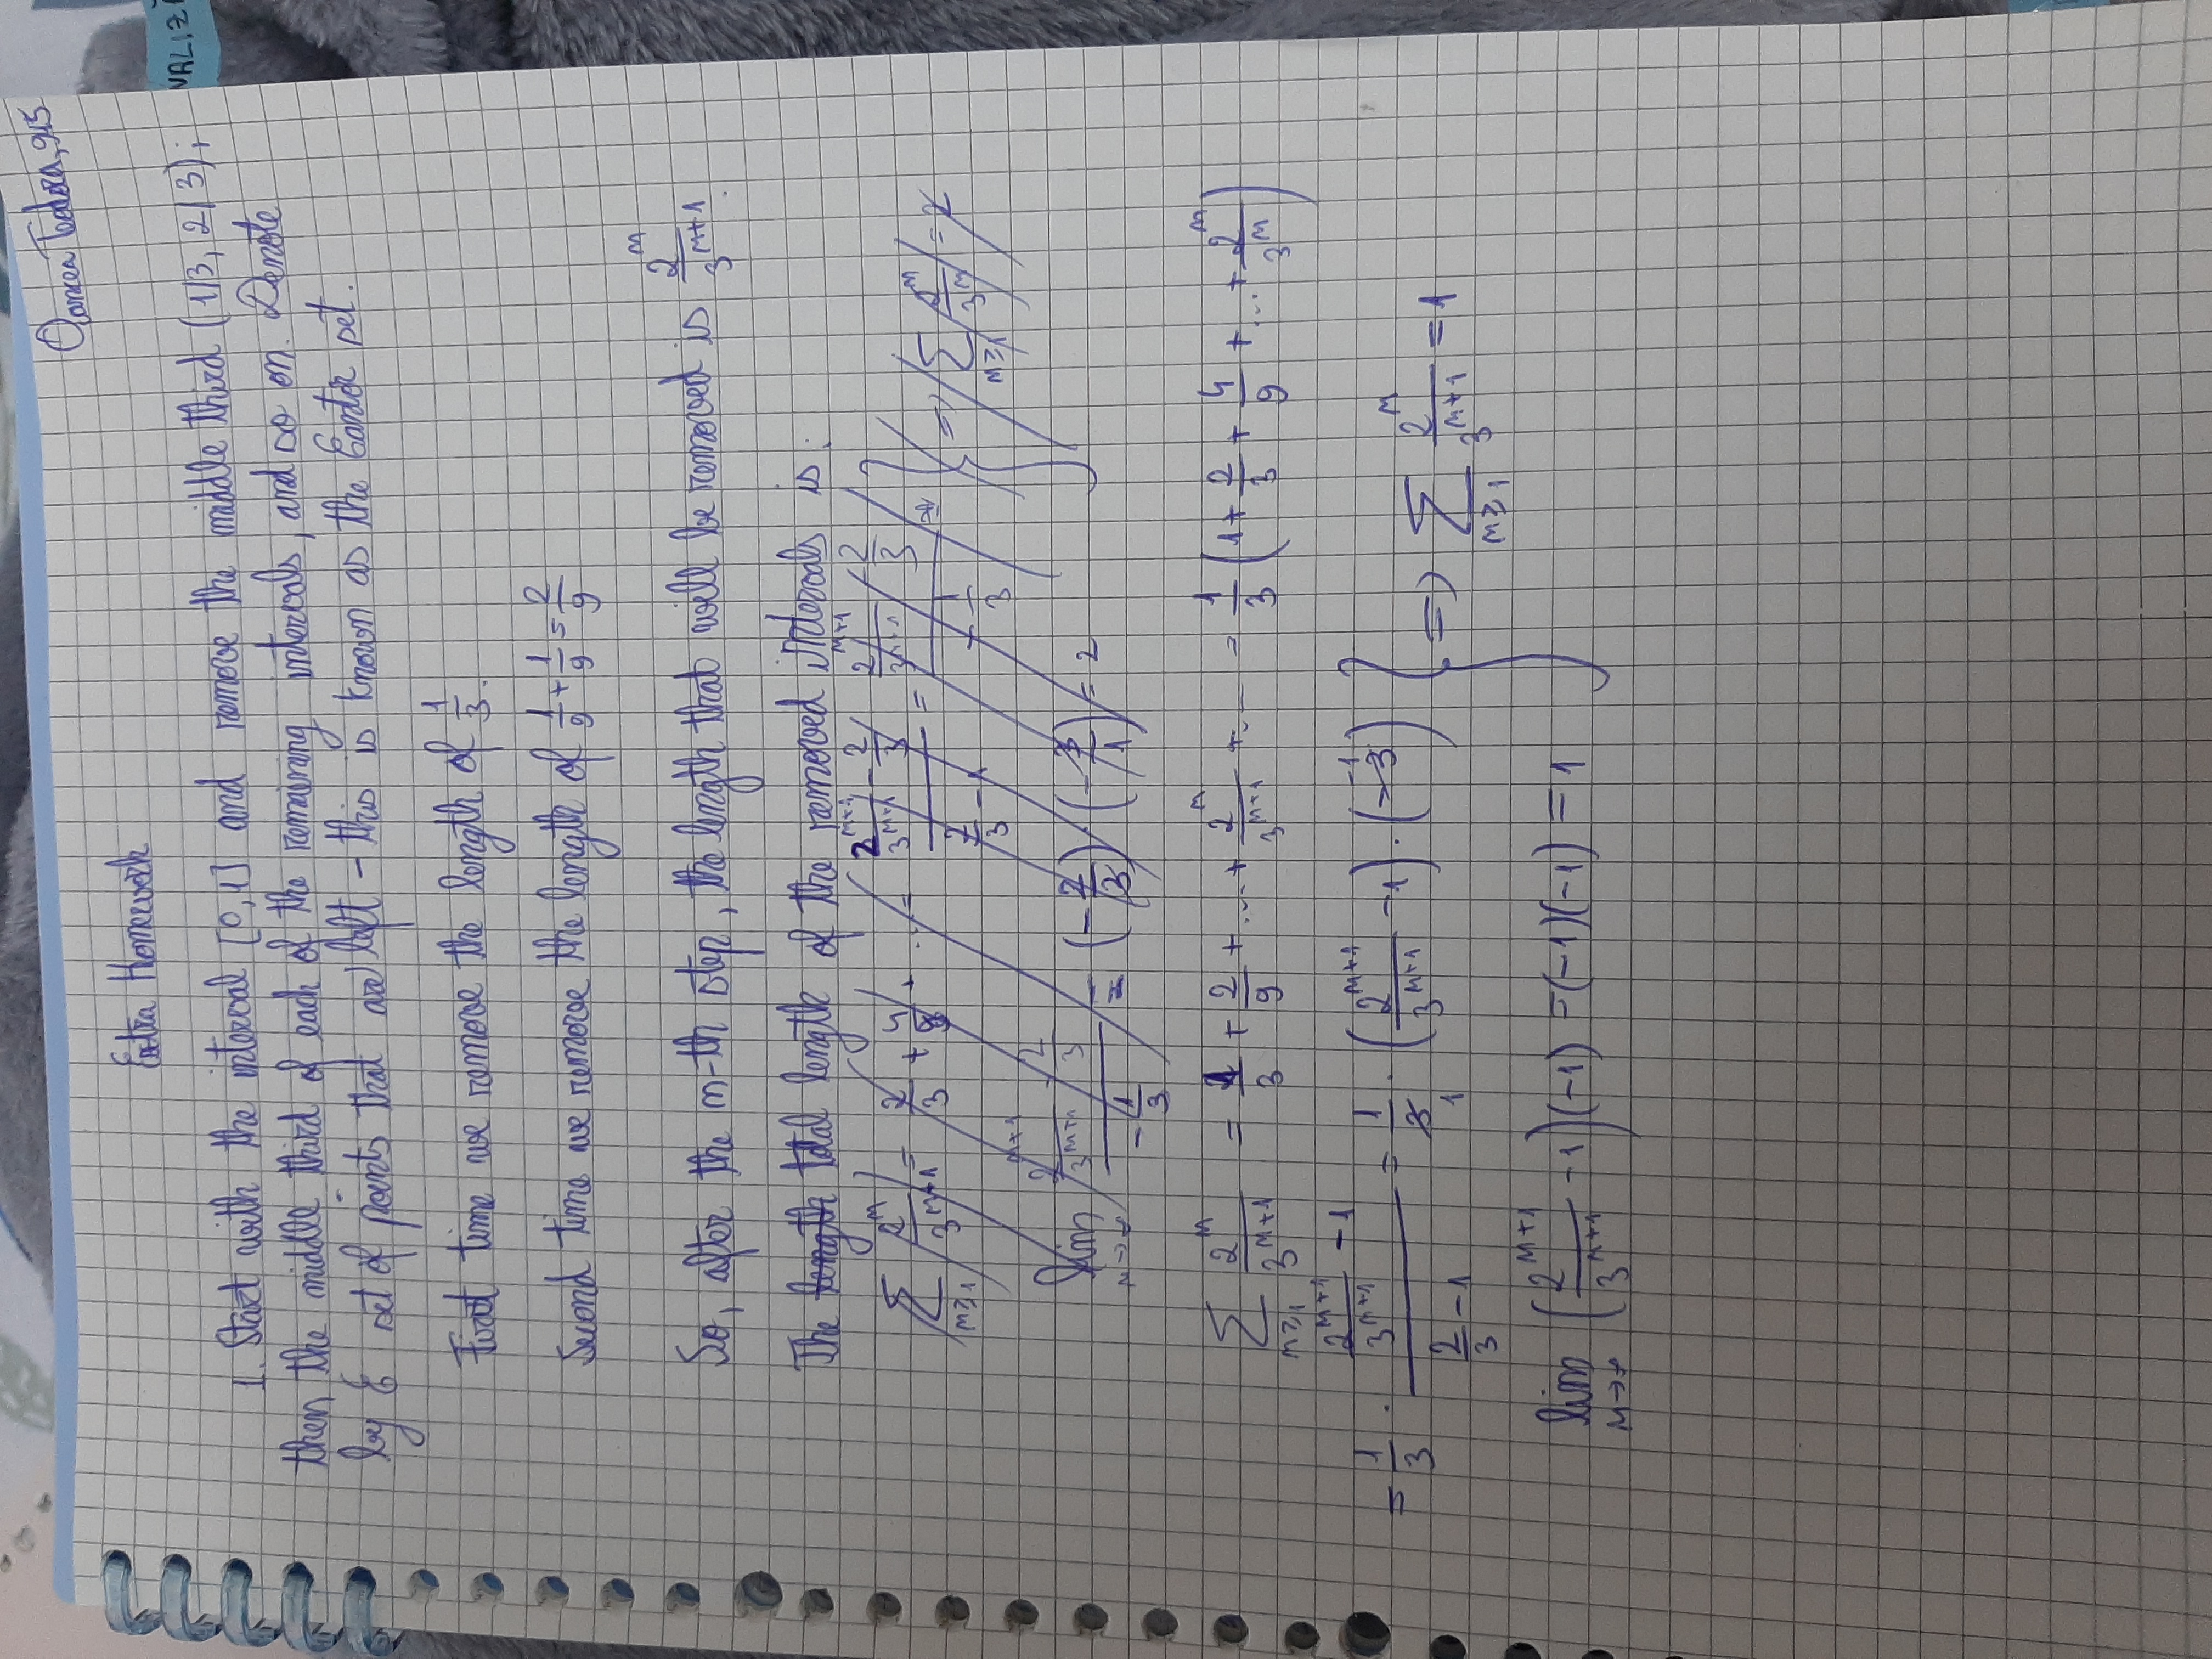 Teodora, 915
VALIZ
Extra Homework
1. Start with the interval [0,1] and remove the middle third (1/3, 2/3);
then the middle third of each of the remaining intervals, and so on. Denote
by C set of points that are left - this is known as the Cantor set.
First time we remove the length of 1/3.
Second time we remove the length of 1/9 + 1/9 = 2/9
So, after the n-th step, the length that will be removed is 2^n/3^(n+1).
The length total length of the removed intervals is:
∑_(n≥1) 2^n/3^(n+1) = 2/3 + 4/9 + ... = (2^(n+1)/3^(n+1) - 2/3)/(2/3 - 1) = (2^(n+1)/3^(n+1) - 2/3)/(-1/3) } => ∑_(n≥1) 2^n/3^n = 2
lim_(n→∞) (2^(n+1)/3^(n+1) - 2/3)/(-1/3) = (-2/3) · (-3/1) = 2
∑_(n≥1) 2^n/3^(n+1) = 1/3 + 2/9 + ... + 2^n/3^(n+1) + ... = 1/3 (1 + 2/3 + 4/9 + ... + 2^n/3^n)
= 1/3 · (2^(n+1)/3^(n+1) - 1)/(2/3 - 1) = 1/3 · (2^(n+1)/3^(n+1) - 1) · (-3) } => ∑_(n≥1) 2^n/3^(n+1) = 1
lim_(n→∞) (2^(n+1)/3^(n+1) - 1)(-1) = (-1)(-1) = 1